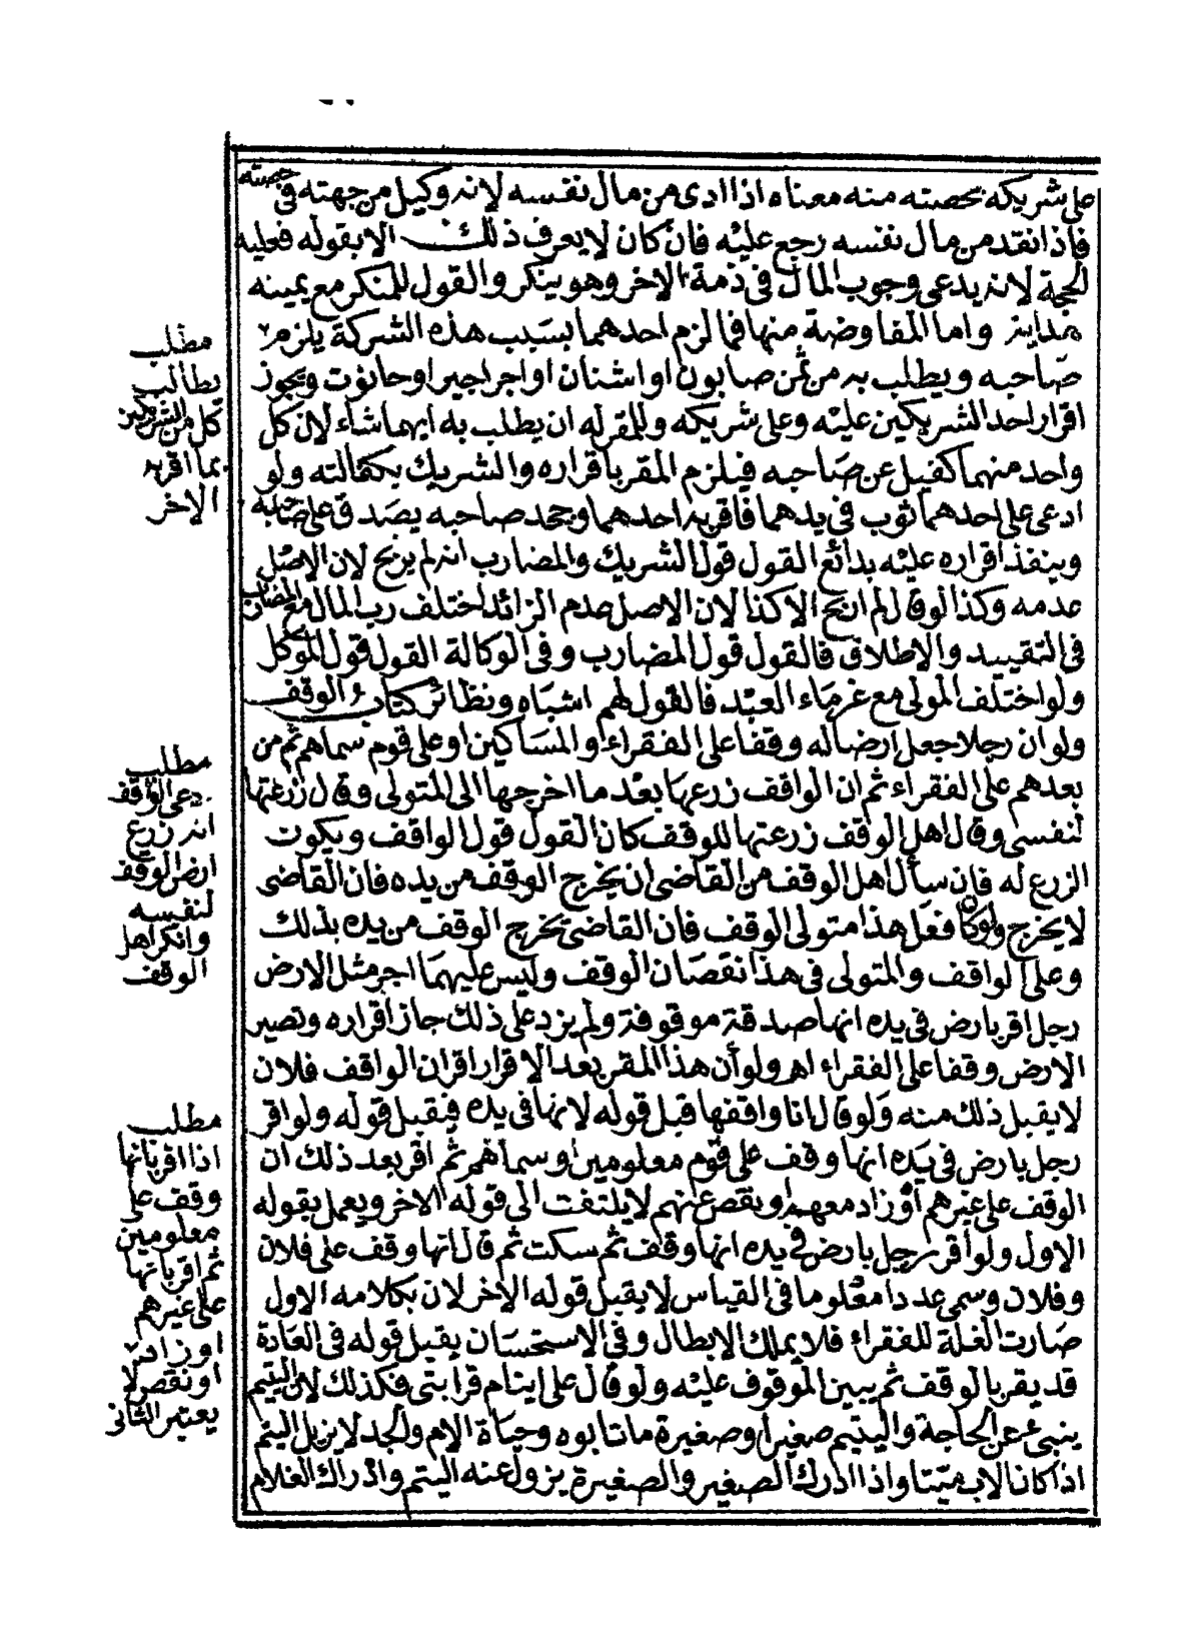 على شريكه بحصته منه معناه اذا ادى من مال نفسه لانه وكيل من جهته في حصته
فاذا نقد من مال نفسه رجع عليه فان كان لا يعرف ذلك الا بقوله فعليه
الحجة لانه يدعى وجوب المال فى ذمة الاخر وهو ينكر والقول للمنكر مع يمينه
هداية واما المفاوضة منها فما لزم احدهما بسبب هذه الشركة يلزم
صاحبه ويطلب به من ثمن صابون او اشنان او اجر اجير او حانوت ويجوز
اقرار احد الشريكين عليه وعلى شريكه وللمقر له ان يطلب به ايهما شاء لان كل
واحد منهما كفيل عن صاحبه فيلزم المقر باقراره والشريك بكفالته ولو
ادعى على احدهما ثوب فى يدهما فاقر به احدهما وجحد صاحبه يصدق على صاحبه
وينفذ اقراره عليه بدائع القول قول الشريك والمضارب انه لم يربح لان الاصل
عدمه وكذا لو قال لم اربح الا كذا لان الاصل عدم الزائد اختلف رب المال مع المضارب
فى التقييد والاطلاق فالقول قول المضارب وفى الوكالة القول قول الموكل
ولو اختلف المولى مع غرماء العبد فالقول لهم اشباه ونظائر كتاب الوقف
ولو ان رجلا جعل ارضا له وقفا على الفقراء او المساكين او على قوم سماهم ثم من
بعدهم على الفقراء ثم ان الواقف زرعها بعد ما اخرجها الى المتولى وقال زرعتها
لنفسى وقال اهل الوقف زرعتها للوقف كان القول قول الواقف ويكون
الزرع له فان سأل اهل الوقف من القاضى ان يخرج الوقف من يده فان القاضى
لا يخرج ولو فعل هذا متولى الوقف فان القاضى يخرج الوقف من يده بذلك
وعلى الواقف والمتولى فى هذا نقصان الوقف وليس عليهما اجر مثل الارض
رجل اقر بارض فى يده انها صدقة موقوفة ولم يزد على ذلك جاز اقراره وتصير
الارض وقفا على الفقراء اهـ ولو أن هذا المقر بعد الاقرار اقر ان الواقف فلان
لا يقبل ذلك منه ولو قال انا واقفها قبل قوله لانها فى يده فيقبل قوله ولو اقر
رجل بارض فى يده انها وقف على قوم معلومين وسماهم ثم اقر بعد ذلك ان
الوقف على غيرهم أو زاد معهم او نقص عنهم لا يلتفت الى قوله الاخر ويعمل بقوله
الاول ولو اقر رجل بارض فى يده انها وقف ثم سكت ثم قال انها وقف على فلان
وفلان وسمى عددا معلوما فى القياس لا يقبل قوله الاخر لان بكلامه الاول
صارت الغلة للفقراء فلا يملك الابطال وفى الاستحسان يقبل قوله فى العادة
قد يقر بالوقف ثم يبين الموقوف عليه ولو قال على ايتام قرابتى فكذلك لان اليتيم
ينبئ عن الحاجة واليتيم صغير او صغيرة مات ابوه وحياة الام والجد لا يزيل اليتم
اذا كان الاب ميتا واذا ادرك الصغير والصغيرة يزول عنه اليتم وادراك الغلام
مطلب
يطالب
كل من الشريكين
بما اقر به
الاخر
مطلب
ادعى الواقف
انه زرع
ارض الوقف
لنفسه
وانكر اهل
الوقف
مطلب
اذا اقر بانها
وقف على
معلومين
ثم اقر بانها
على غيرهم
او زاد
او نقص لا
يعتبر الثانى